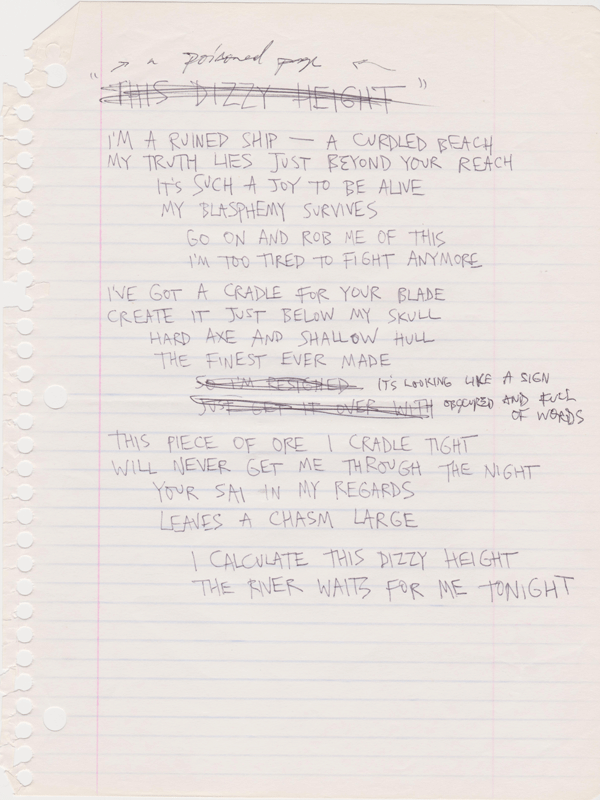 → a poisoned page ←
"THIS DIZZY HEIGHT"
I'M A RUINED SHIP — A CURDLED BEACH
MY TRUTH LIES JUST BEYOND YOUR REACH
IT'S SUCH A JOY TO BE ALIVE
MY BLASPHEMY SURVIVES
GO ON AND ROB ME OF THIS
I'M TOO TIRED TO FIGHT ANYMORE
I'VE GOT A CRADLE FOR YOUR BLADE
CREATE IT JUST BELOW MY SKULL
HARD AXE AND SHALLOW HULL
THE FINEST EVER MADE
SO I'M RESIGNED IT'S LOOKING LIKE A SIGN
JUST GET IT OVER WITH OBSCURED AND FULL
OF WORDS
THIS PIECE OF ORE I CRADLE TIGHT
WILL NEVER GET ME THROUGH THE NIGHT
YOUR SAI IN MY REGARDS
LEAVES A CHASM LARGE
I CALCULATE THIS DIZZY HEIGHT
THE RIVER WAITS FOR ME TONIGHT